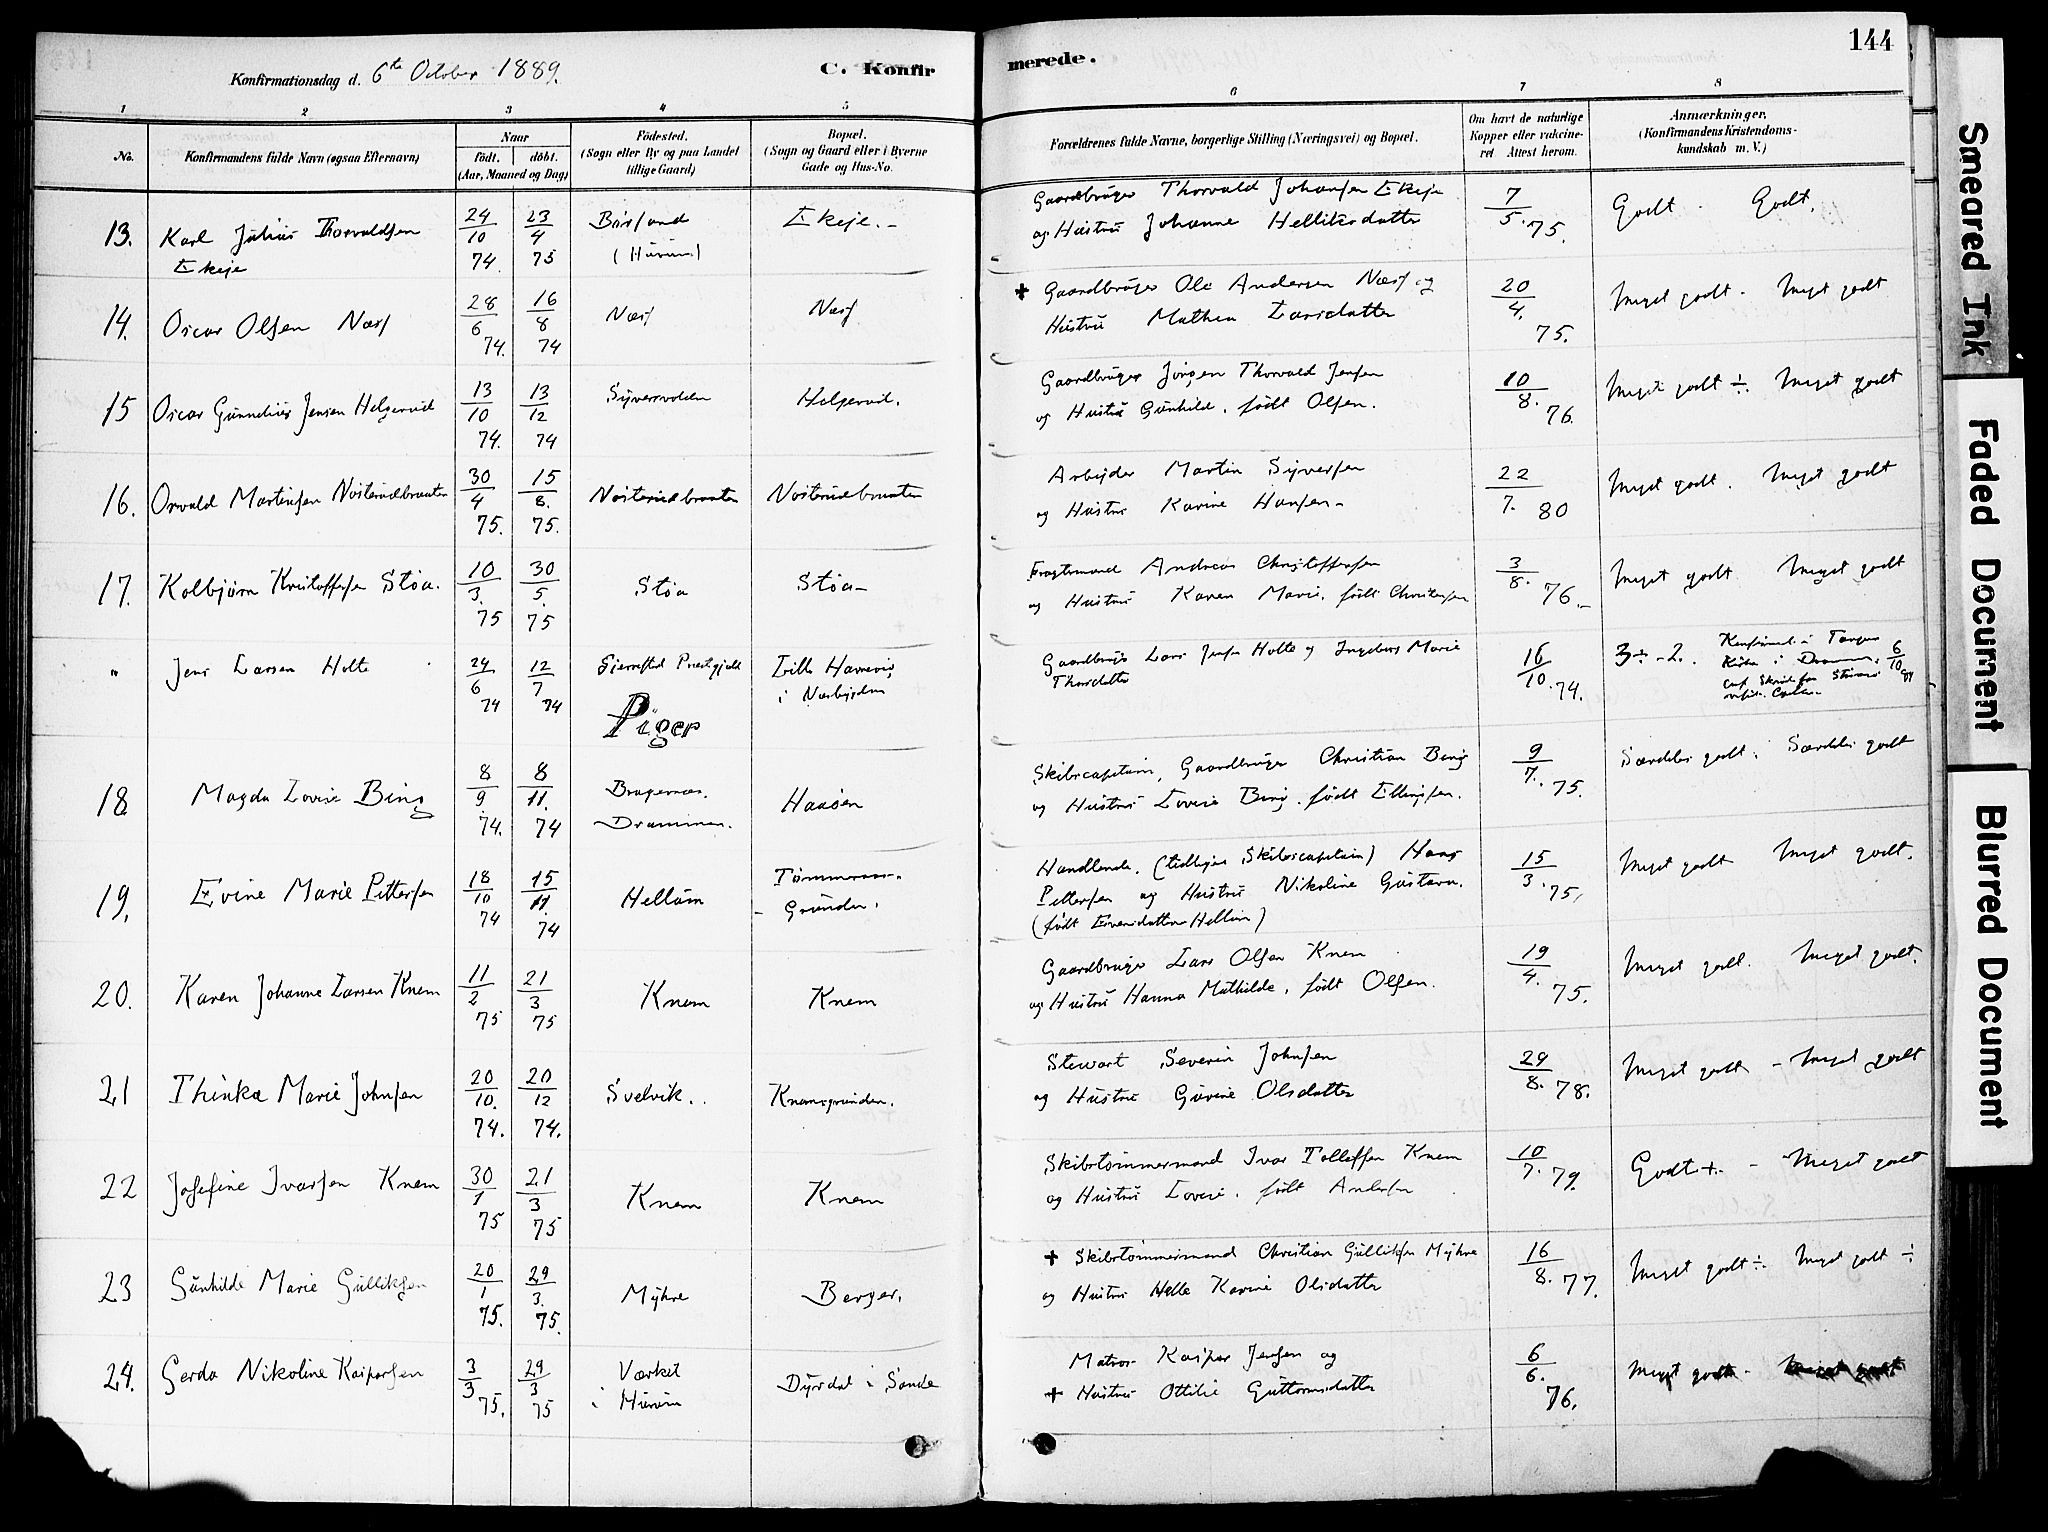 144
Konfirmationsdag d. 6te October 1889.
C. Konfir
merede.
1 2 3 4 5 6 7 8
No.
Konfirmandens fulde Navn (ogsaa Efternavn)
Naar
født. døbt.
(Aar, Maaned og Dag)
Fødested.
(Sogn eller By og paa Landet
tillige Gaard)
Bopæl.
(Sogn og Gaard eller i Byerne
Gade og Hus-No.
Forældrenes fulde Navne, borgerlige Stilling (Næringsvei) og Bopæl.
Om havt de naturlige
Kopper eller vakcine-
ret Attest herom.
Anmærkninger.
(Konfirmandens Kristendoms-
kundskab m. V.)
13. Karl Julius Thorvaldsen
Ekeje
24/10 74 23/4 75
(Hurum)
Ekeje.-
Gaardbruger Thorvald Johansen Ekeje
og Hustru Johanne Helliksdatter
7/5.75.
Godt - Godt.
14. Oscar Olsen Næss
28/6 74. 16/8 74
Næss
Næss
+ Gaardbruger Ole Andersen Næss og
Hustru Mathea Larsdatter
20/4. 75.
Meget godt - Meget godt
15 Oscar Gunnelius Jensen Helgerud
13/10 74. 13/12 74
Syversvolden
Helgerud.
Gaardbruger Jørgen Thorvald Jensen
og Hustru Gunhild, født Olsen.
10/8. 76.
Meget godt ÷. Meget godt
16. Osvald Martinsen Nøsterudbraaten
30/4 75. 15/8. 75.
Nøsterudbraaten
Nøsterudbraaten
Arbejder Martin Syversen
og Hustru Karine Hansen-
22/7. 80
Meget godt. Meget godt
17. Kolbjørn Kristoffersen Støa.
10/3. 75 30/5. 75
Støa
Støa-
Fragtemand Andreas Christoffersen
og Hustru Karen Marie, født Christensen
3/8. 76.-
Meget godt Meget godt
" Jens Larsen Holte
24/6 74 12/7 74
Præstegjeld
Lille Havnevig
i Næsbygden
Gaardbruger Lars Jensen Holte og Ingeborg Marie
Thorsdatter
16/10.74.
3÷-2. Konfirmert i Tangen
Kirke i Drammen 6/10 89
Piger
18. Magda Lovise Bing
8/9 74. 8/11. 74
Bragernæs.
Drammen.
Haaøen
Skibscapitain, Gaardbruger Christian Bing
og Hustru Lovise Bing, født Ellingsen.
9/7. 75.
Særdeles godt. Særdeles godt
19. Evine Marie Pettersen
18/10 74 15/11. 74
Hellum
Tømmeraas-
Grunden.
Handlende. (tidligere Skibscapitain) Hans
Pettersen og Hustru Nikoline Gustava.
(født Evensdatter Hellum)
15/3.75,
Meget godt Meget godt.
20. Karen Johanne Larsen Knem
11/2 75 21/3 75
Knem
Knem
Gaardbruger Lars Olsen Knem
og Hustru Hanna Mathilde, født Olsen.
19/4. 75.
Meget godt. Meget godt.
21 Thinka Marie Johnsen
20/10. 74. 20/12 74.
Svelvik..
Knemsgrunden.
Stewart Severin Johnsen
og Hustru Gurine Olsdatter
29/8. 78.
Meget godt - Meget godt
22 Josefine Ivarsen Knem
30/1 75 21/3 75
Knem
Knem
Skibstømmermand Ivar Tollefsen Knem
og Hustru Lovise. født Andersen
10/7. 79.
Godt +. - Meget godt
23 Gunhilde Marie Gulliksen
20/1 75. 29/3. 75.
Myhre
Berger.
+ Skibstømmermand Christian Gulliksen Myhre
og Hustru Helle Karine Olsdatter
16/8. 77.
Meget godt ÷. Meget godt ÷
24. Gerda Nikoline Kasparsen
3/3 75. 29/3 75
Værket
i Hurum
Dyrdal i Sande
Matros Kaspar Jensen og
+ Hustru Ottilie Guttormsdatter
6/6. 76.
Meget godt - Meget godt
Smeared Ink
Faded Document
Blurred Document